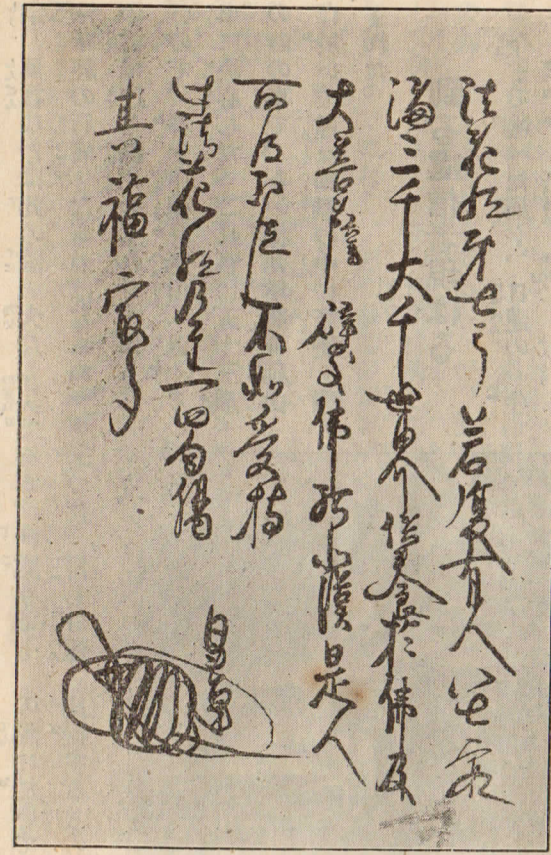 法花経第七云若復有人以七宝
満三千大千世界供養於佛及
大菩薩辟支佛阿羅漢是人
所得功徳不如受持
此法花経乃至一四句偈
其福最多